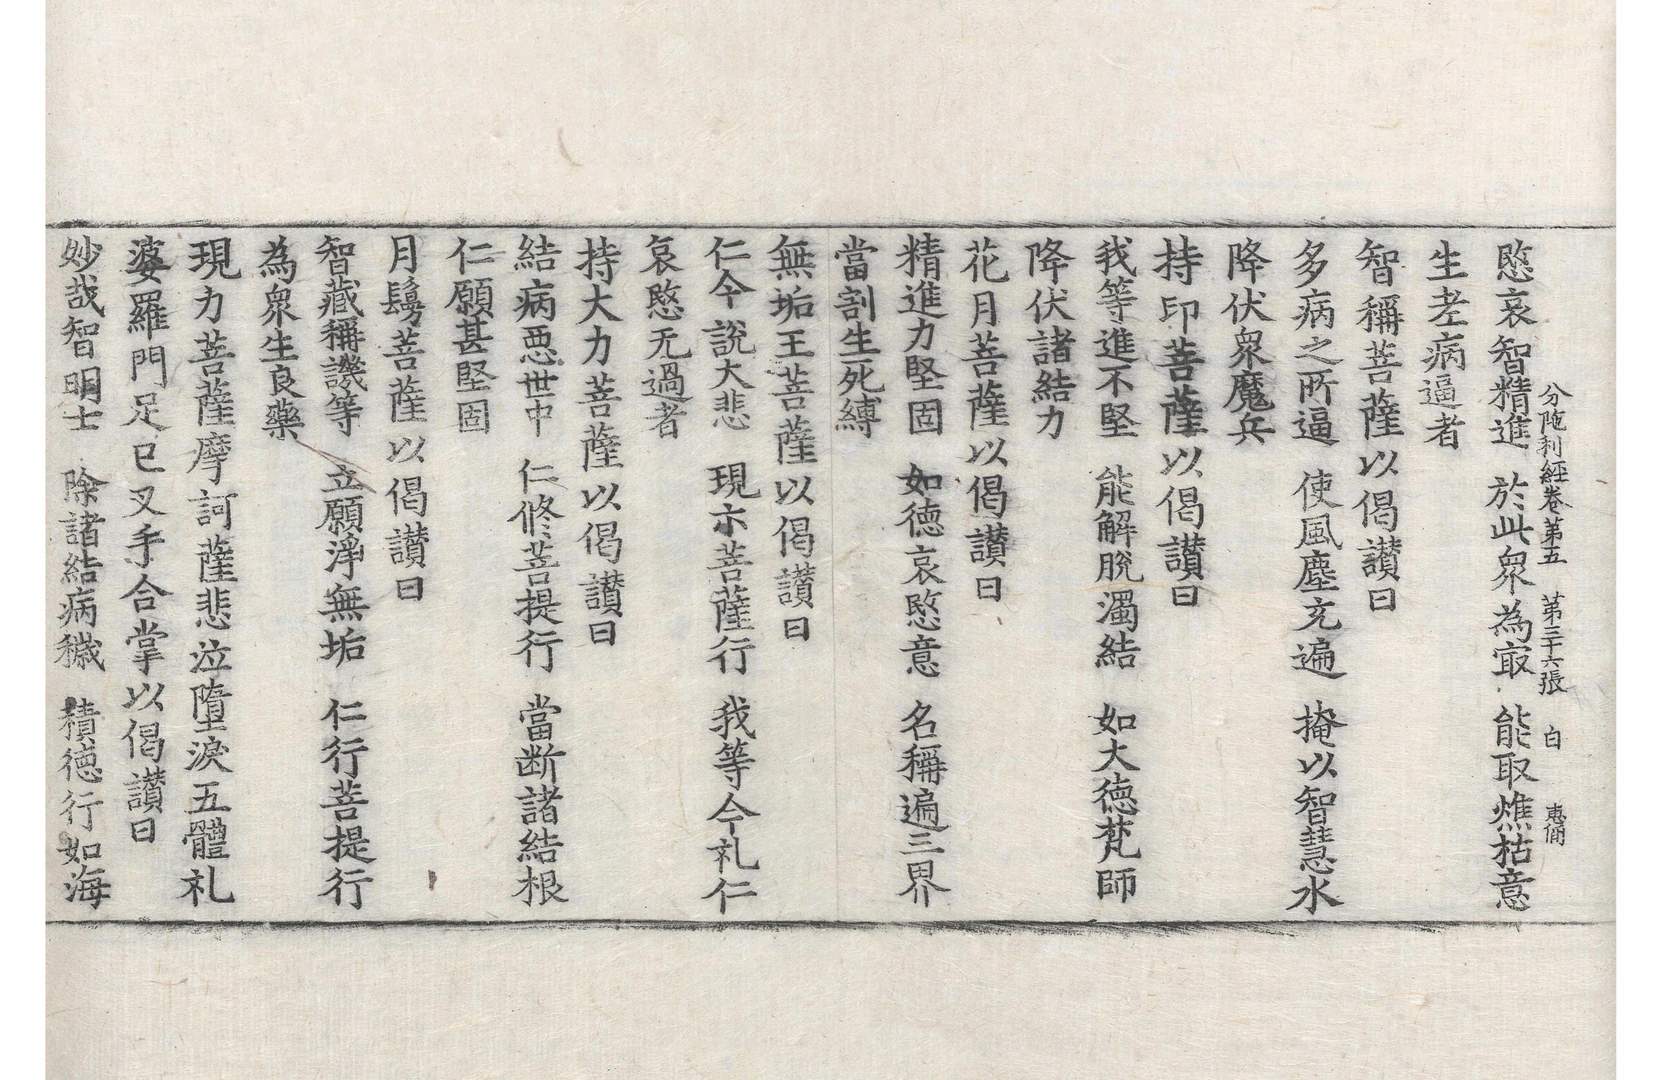 愍哀智精進　於此衆為㝡　能取燋枯意
分陁利經卷第五　第三十六張　白　惠俏
生老病逼者
智稱菩薩以偈讃曰
多病之所逼　使風塵充遍　掩以智慧水
降伏衆魔兵
持印菩薩以偈讃曰
我等進不堅　能解脫濁結　如大德梵師
降伏諸結力
花月菩薩以偈讃曰
精進力堅固　如德哀愍意　名稱遍三界
當割生死縛
無垢王菩薩以偈讃曰
仁今說大悲　現示菩薩行　我等今礼仁
哀愍无過者
持大力菩薩以偈讃曰
結病惡世中　仁修菩提行　當断諸結根
仁願甚堅固
月鬘菩薩以偈讃曰
智藏稱譏等　立願淨無垢　仁行菩提行
為衆生良藥
現力菩薩摩訶薩悲泣墮淚五體礼
婆羅門足已叉手合掌以偈讃曰
妙哉智明士　除諸結病穢　積德行如海